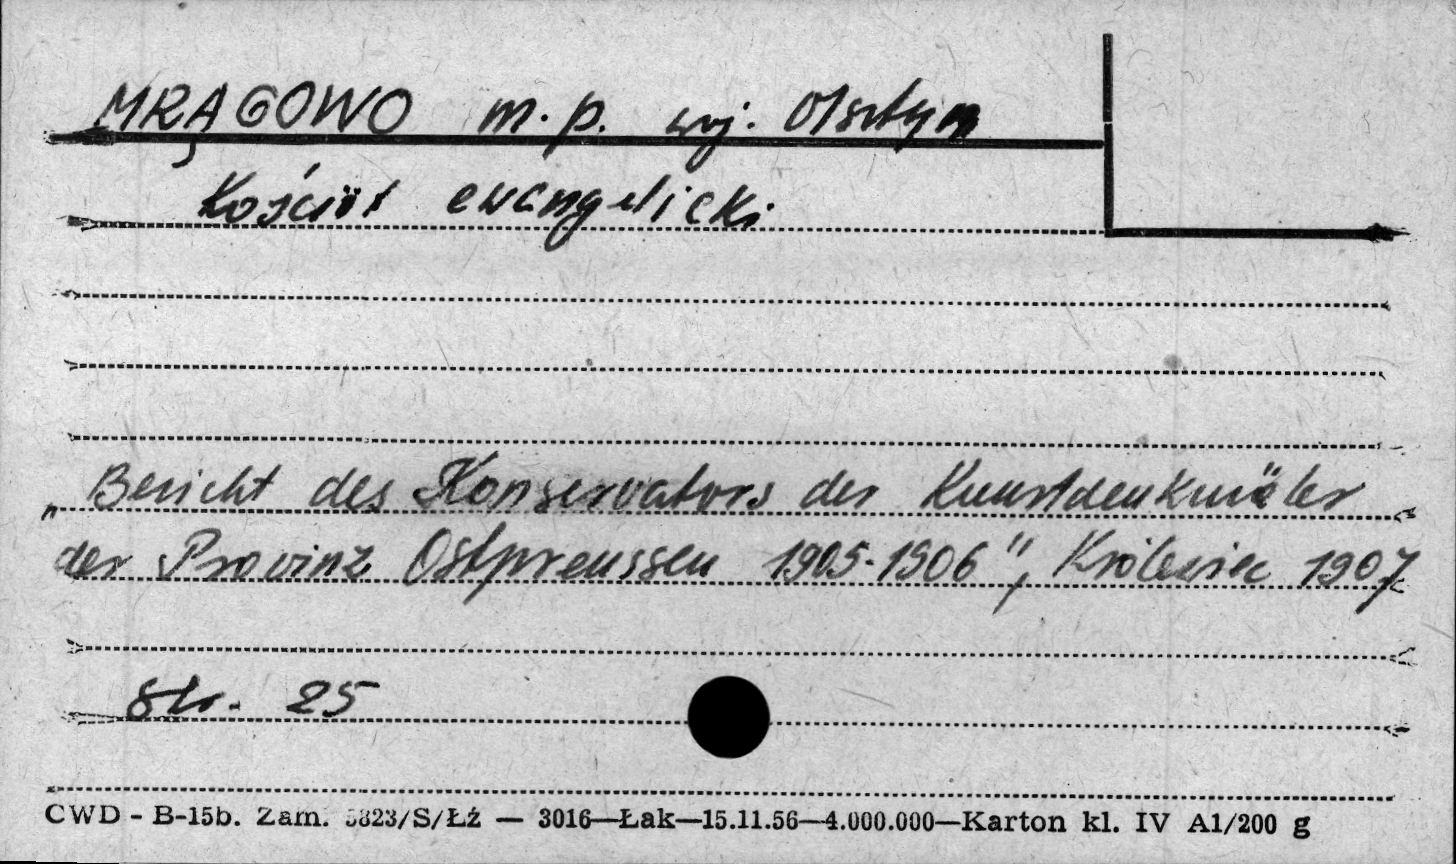 MRĄGOWO m.p. woj. Olsztyn
Kościół ewangelicki
„Bericht des Konservators der Kunstdenkmäler
der Provinz Ostpreussen 1905-1906", Królewiec 1907
str. 25
CWD - B-15b. Zam. 5823/S/Łż — 3016—Łak—15.11.56—4.000.000—Karton kl. IV A1/200 g